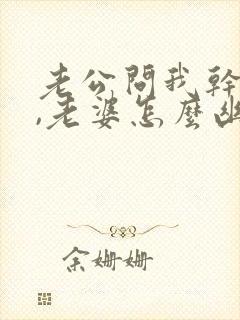 老公問我幹
,老婆怎麼幽
余姗姗